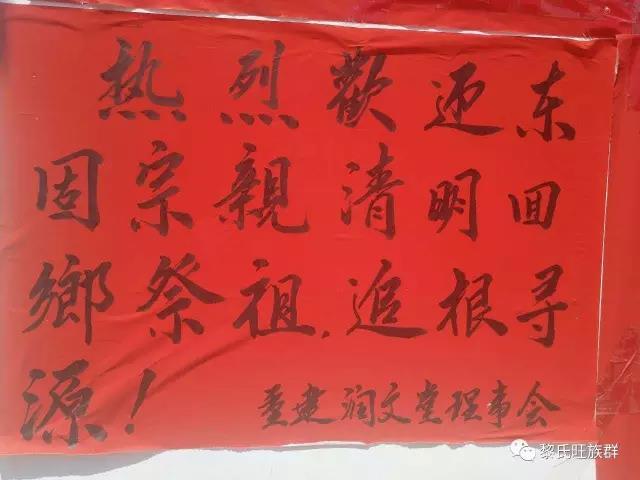 热烈歡迎东
固宗親清明回
鄉祭祖.追根寻
源！
重建润文堂理事会
黎氏旺族群